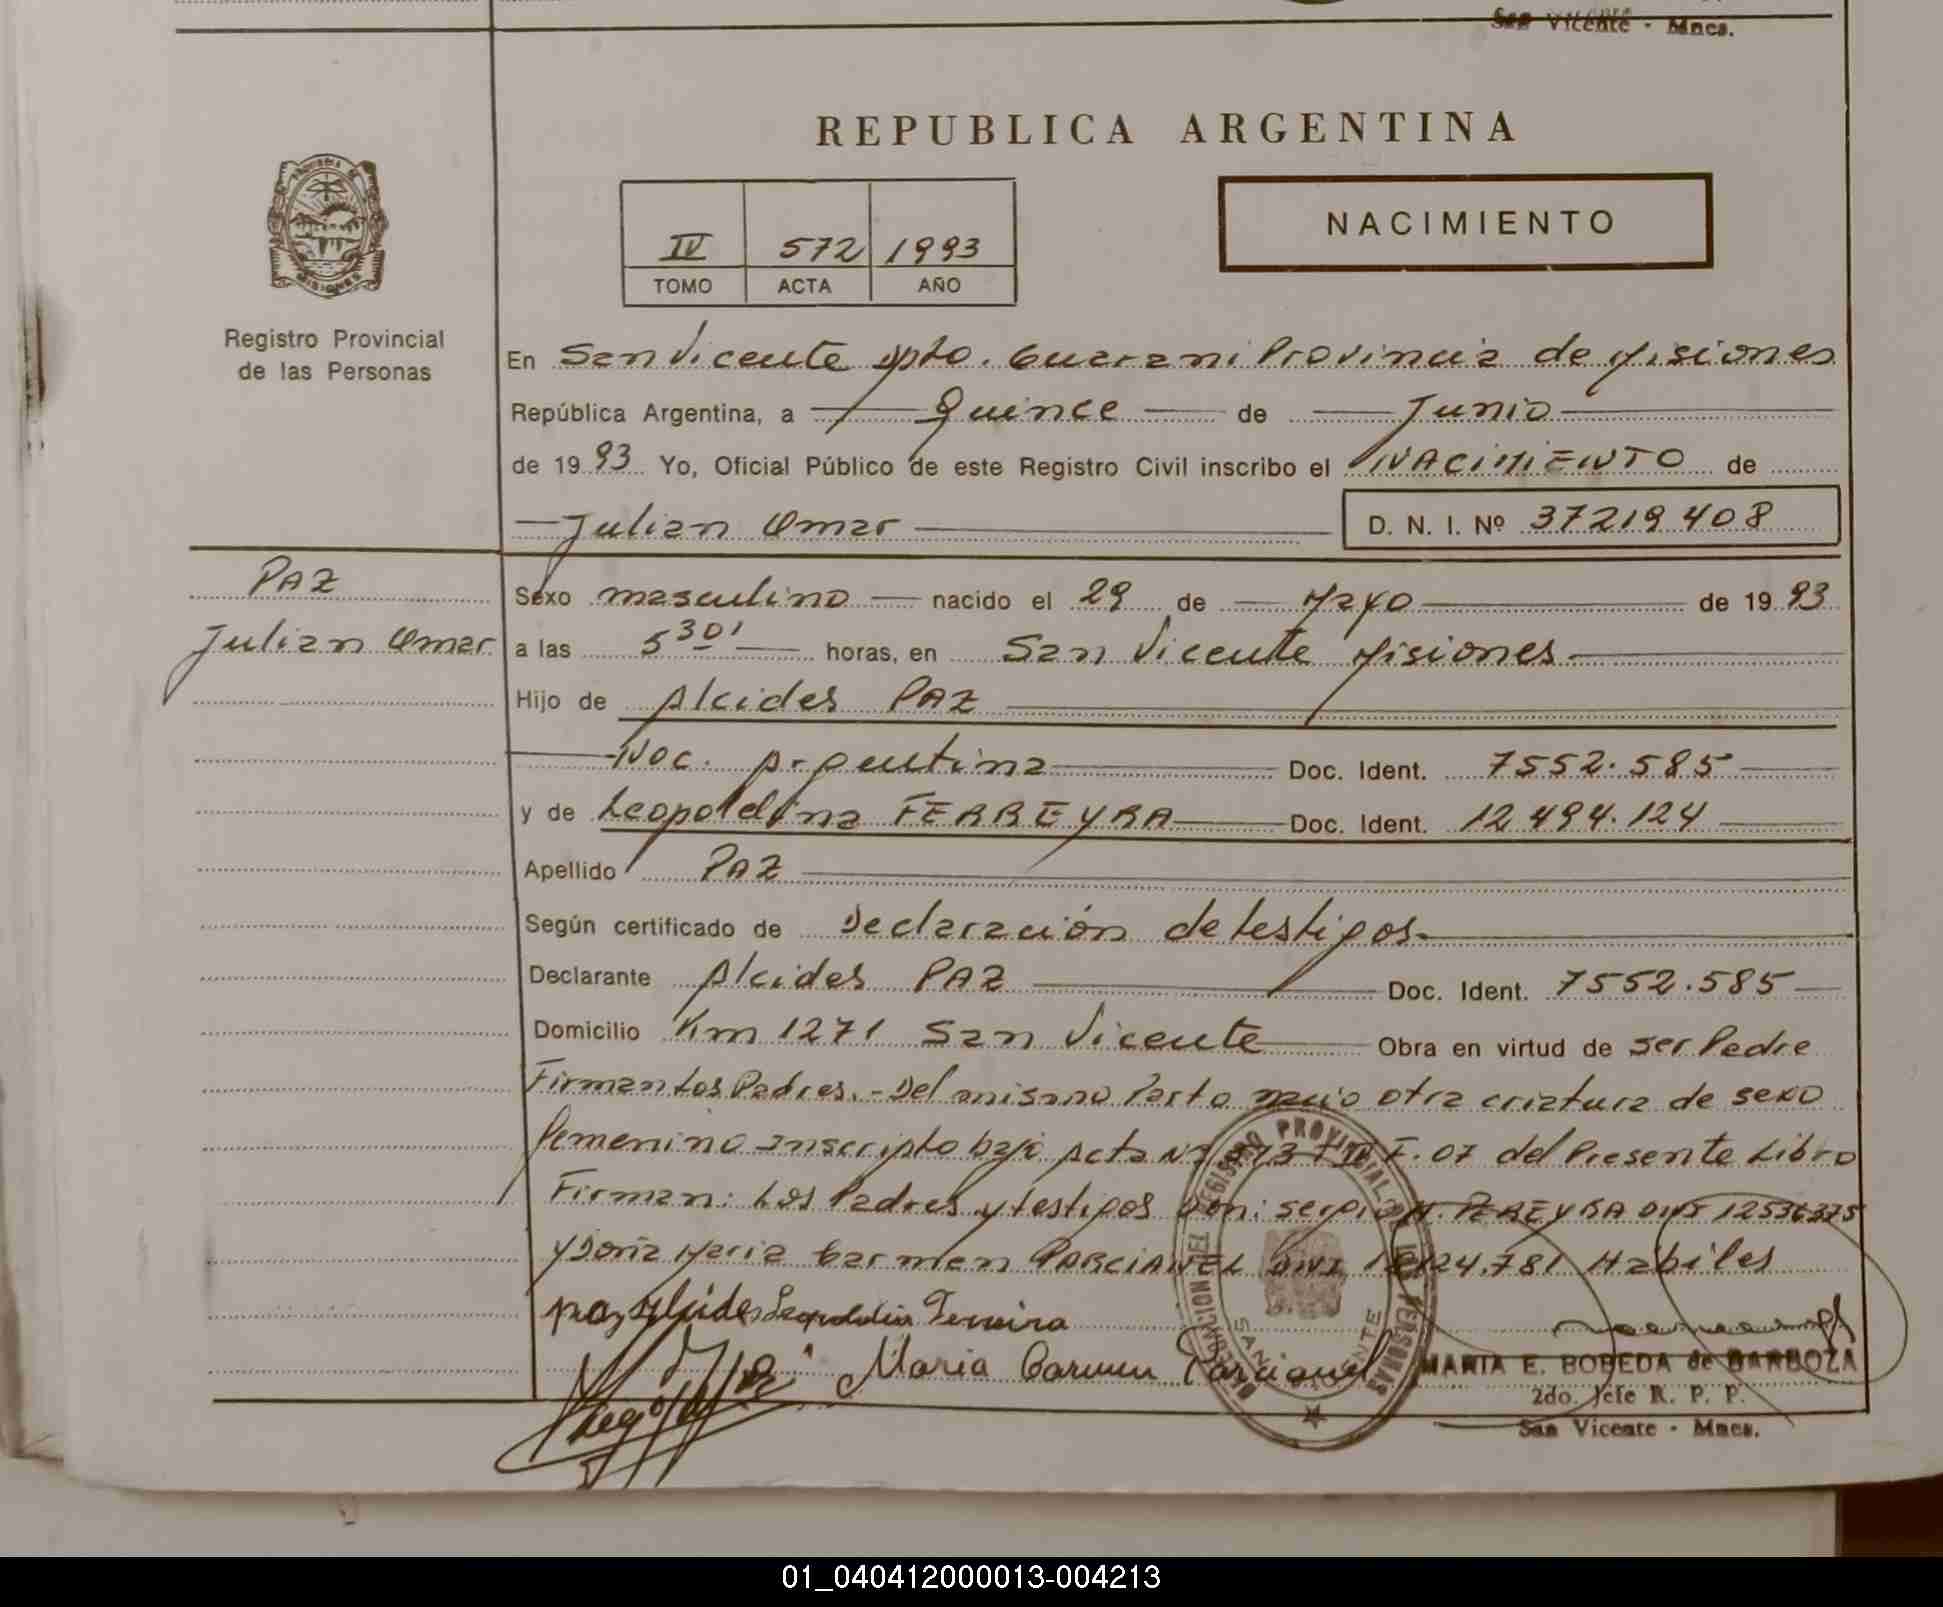 San Vicente - Mnes.
REPUBLICA ARGENTINA
IV 572 1993
TOMO ACTA AÑO
NACIMIENTO
PROVINCIA DE
MISIONES
Registro Provincial
de las Personas
En San Vicente Dpto. Guarani Provincia de Misiones
República Argentina, a Quince de Junio
de 1993 Yo, Oficial Público de este Registro Civil inscribo el NACIMIENTO de
Julian Omar D. N. I. Nº 37219408
PAZ
Julian Omar
Sexo masculino nacido el 29 de Mayo de 1993
a las 5 30' horas, en San Vicente Misiones
Hijo de Alcides PAZ
Nac. Argentina Doc. Ident. 7552.585
y de Leopoldina FERREYRA Doc. Ident. 12.494.124
Apellido PAZ
Según certificado de Declaración de testigos.
Declarante Alcides PAZ Doc. Ident. 7552.585
Domicilio Km 1271 San Vicente Obra en virtud de ser Padre
Firman Los Padres.- Del mismo Parto nacio otra criatura de sexo
femenino inscripto bajo Acta Nº F. 07 del Presente Libro
Firman: Los Padres y testigos Don: Sergio PEREYRA DNI 12536375
y Doña Maria Carmen PARCIANEL DNI Habiles
paz Alcides Leopoldina Ferreira
Maria Carmen Parcianel
REGISTRO PROVINCIAL
SAN VICENTE
MARIA E. BOBEDA de BARBOZA
2do. Jefe R. P. P.
San Vicente - Mnes.
01_040412000013-004213